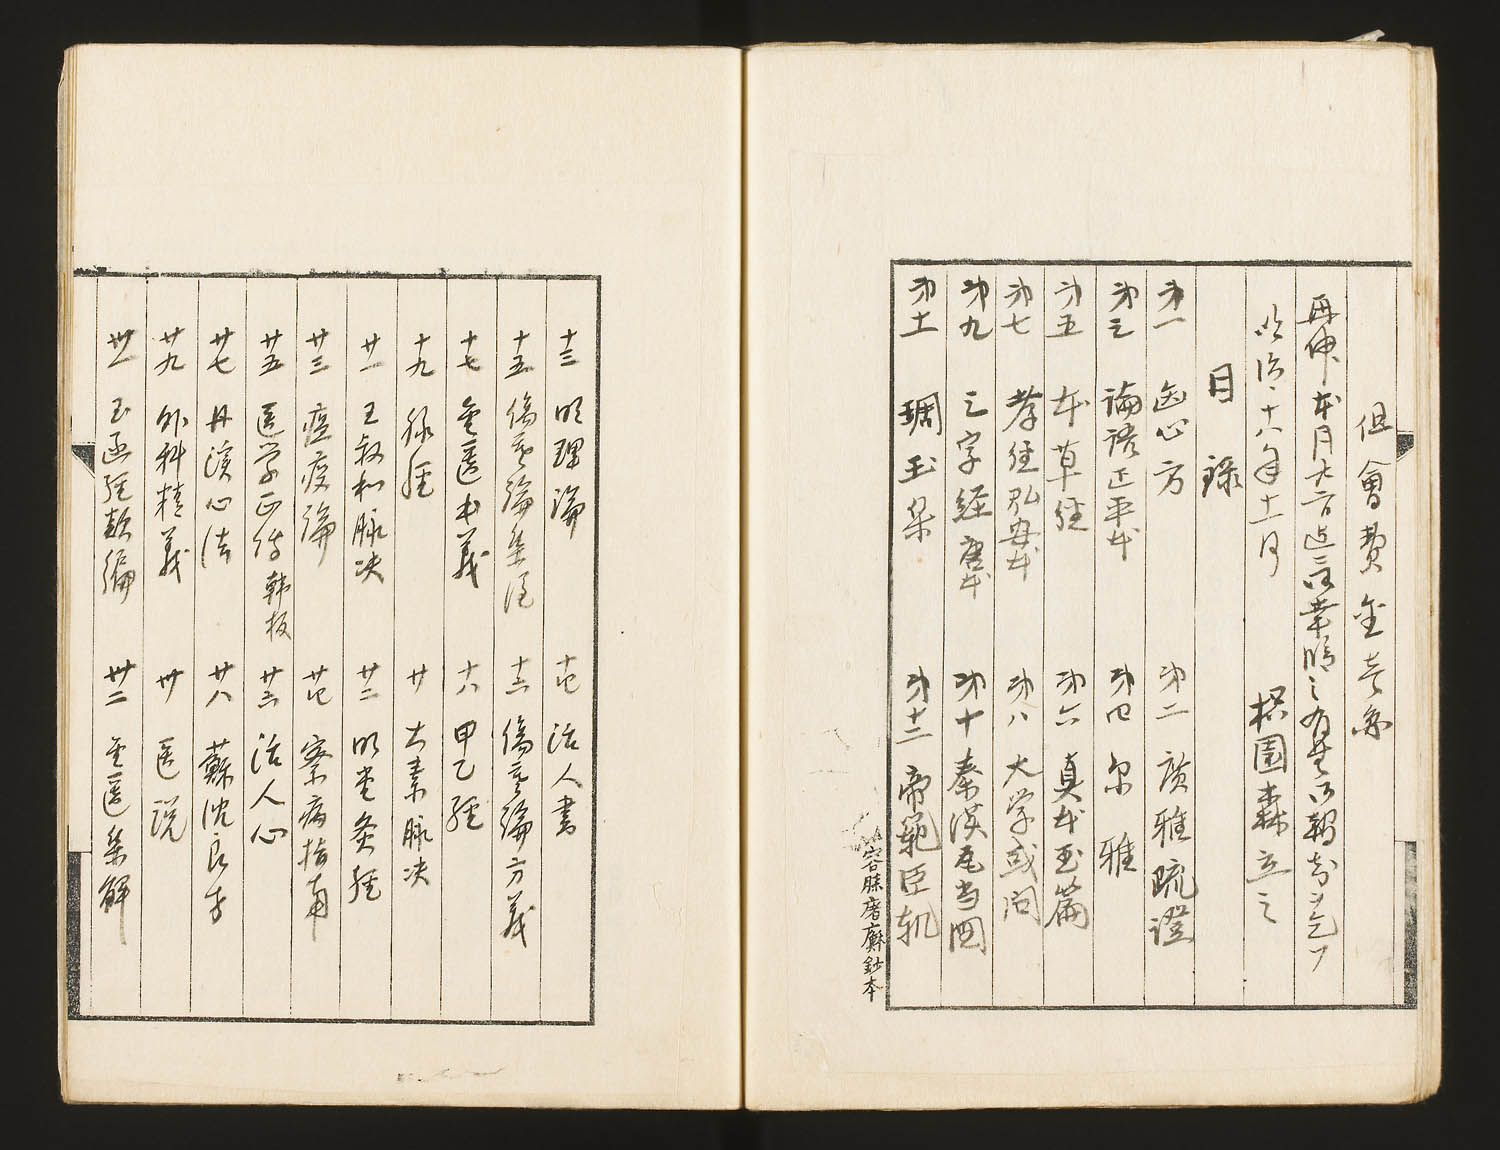 但會費金
再伸本月
明治十八年十一月 枳園森立之
目録
第一 医心方 第二 廣雅疏證
第三 論語正平本 第四 尓雅
第五 本草経 第六 真本玉篇
第七 孝経弘安本 第八 大学或問
第九 三字経唐本 第十 秦漢瓦当図
第十一 琱玉集 第十二 帝範臣軌
鈔本
十三 明理論 十四 活人書
十五 傷寒論集注 十六 傷寒論方義
十七 金匱本義 十八 甲乙経
十九 脉経 廿 太素脉决
廿一 王叔和脉决 廿二 明堂灸経
廿三 瘟疫論 廿四 察病指南
廿五 医学正伝 韓板 廿六 活人心
廿七 丹溪心法 廿八 蘇沈良方
廿九 外科精義 卅 医説
卅一 玉函経類編 卅二 金匱集解